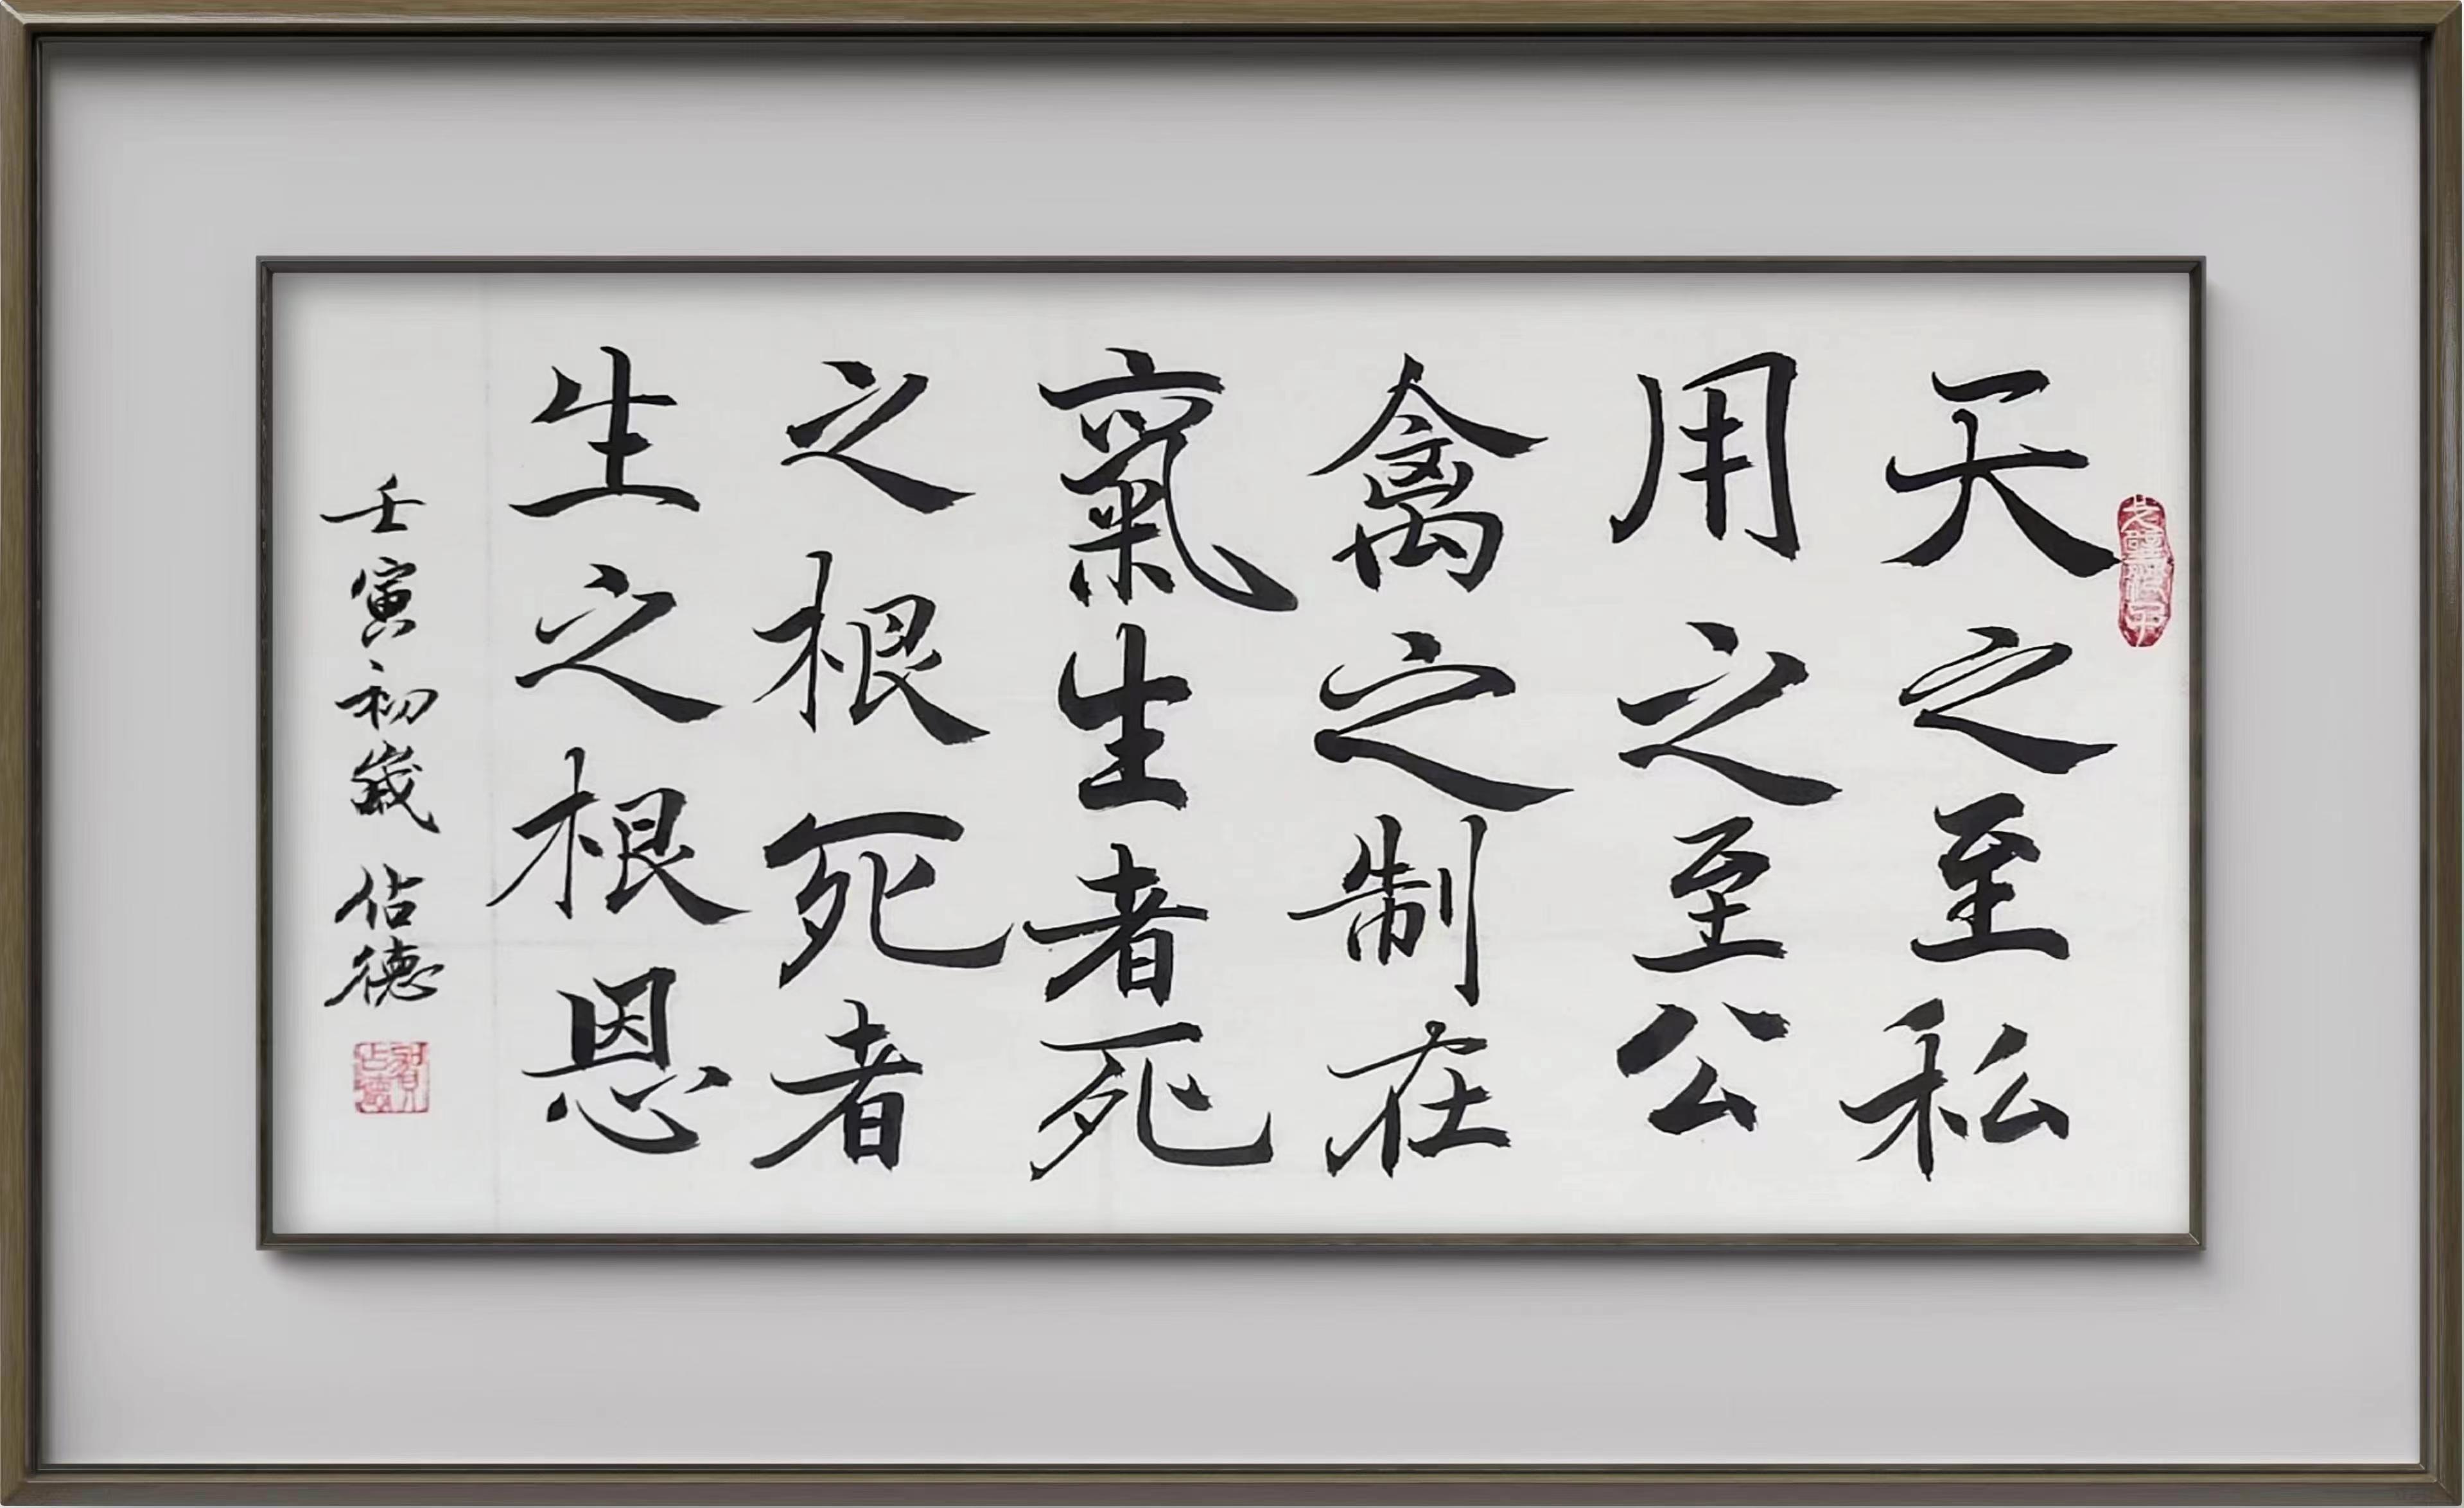 天之至私
用之至公
禽之制在
氣生者死
之根死者
生之根恩
壬寅初歲 佔德